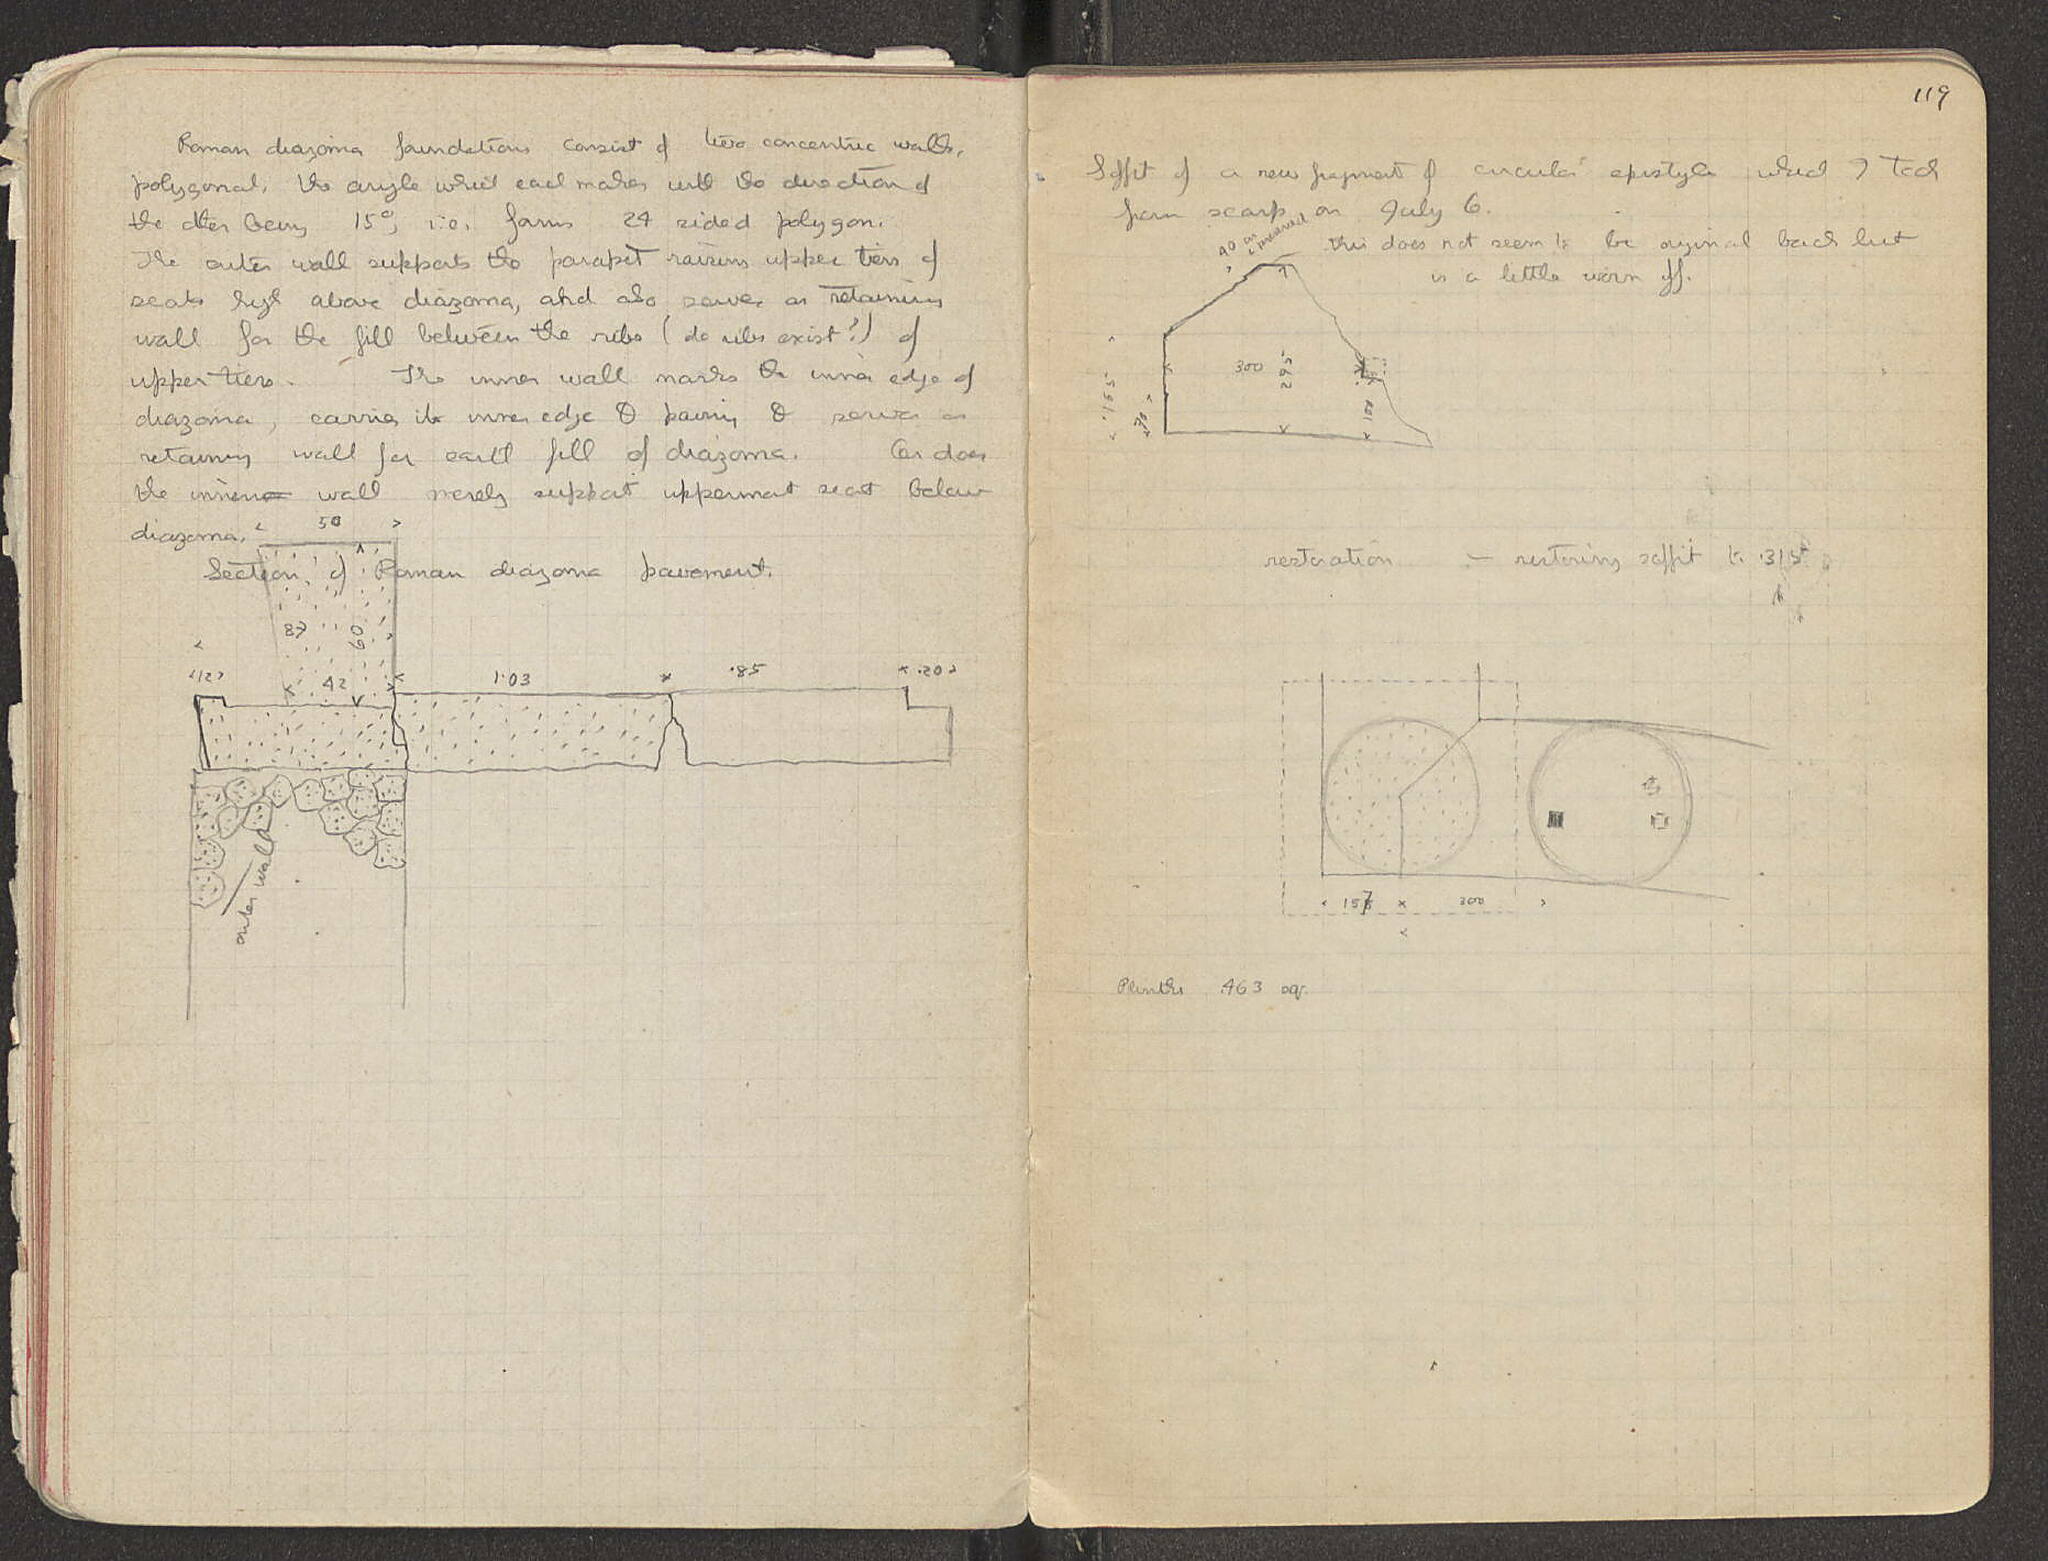 Roman diazoma foundations consist of two concentric walls,
polygonal, the angle which each makes with the direction of
the other being 15°, i.e. forms 24 sided polygon.
The outer wall supports the parapet raising upper tiers of
seats high above diazoma, and also serves as retaining
wall for the fill between the ribs (do ribs exist?) of
upper tiers. The inner wall marks the inner edge of
diazoma, carries its inner edge & paving & serves as
retaining wall for earth fill of diazoma. Or does
the inner wall merely support uppermost seat below
diazoma.
50
Section of Roman diazoma pavement.
87 60
12 42 1.03 .85 .20
outer wall
119
Soffit of a new fragment of circular epistyle which I took
from scarp on July 6.
40 as measured
this does not seem to be original back but
is a little worn off.
300 295
.155
restoration — restoring soffit to .315
157 300
Plinths .463 sq.